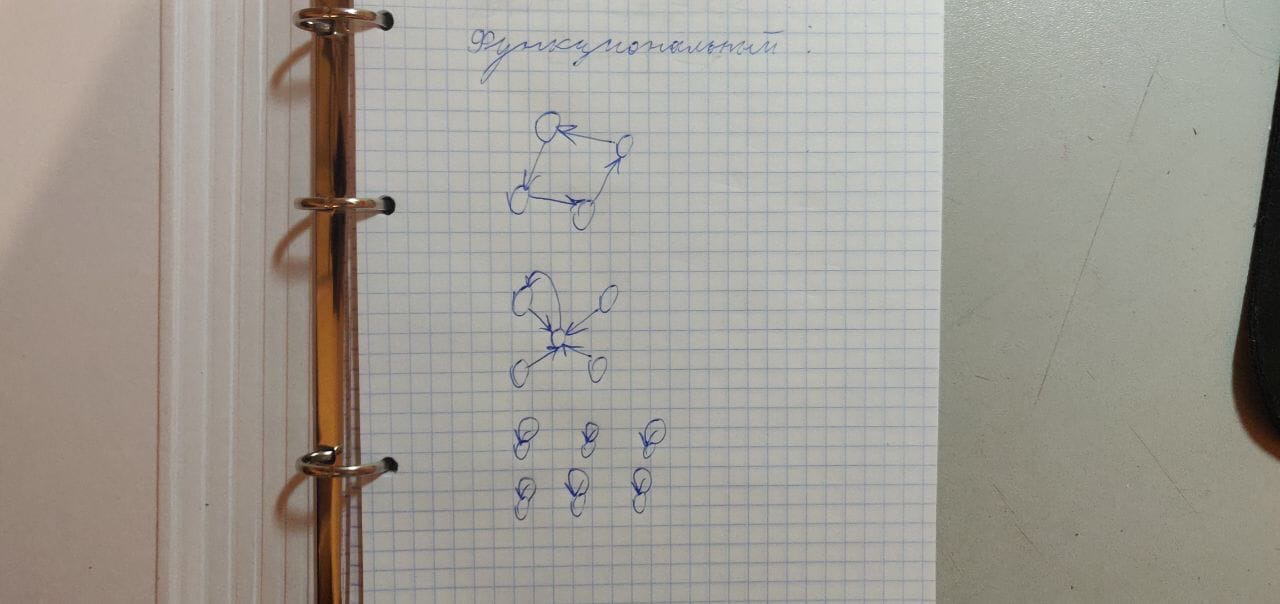 Функциональный :